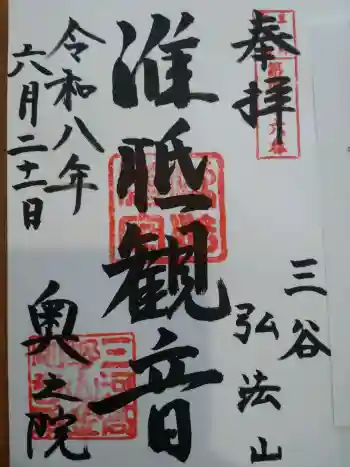 奉拝
三谷
弘法山
准胝観音
令和八年
六月二十一日
奥之院